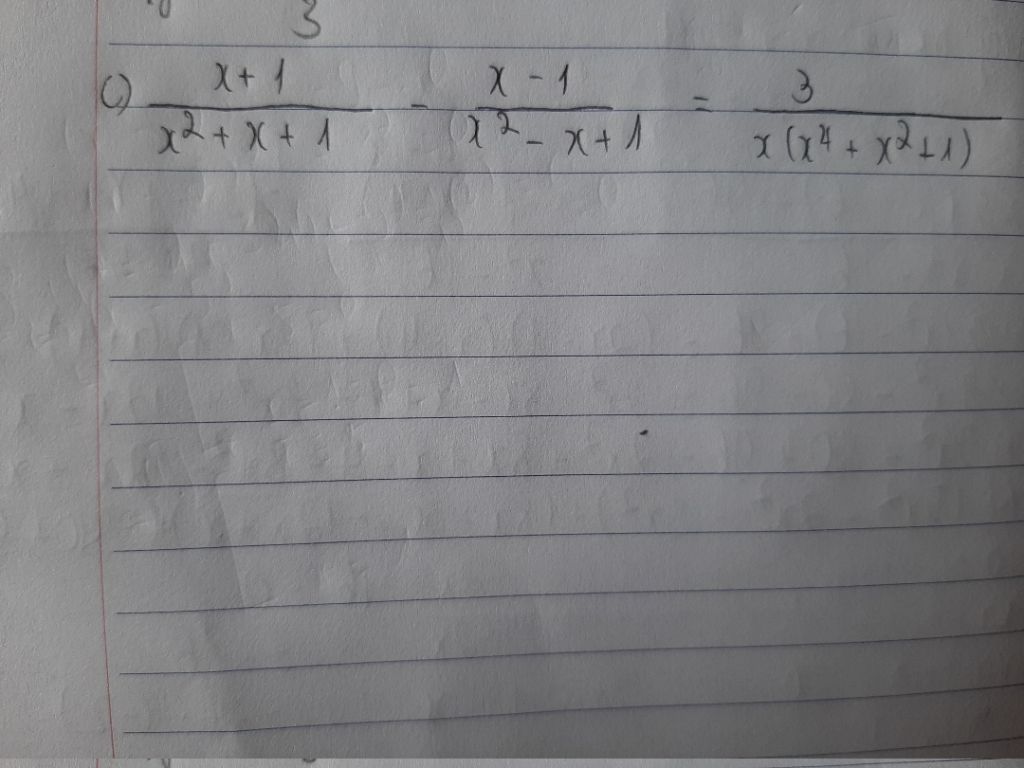 3
c) x+1 / x² + x + 1 - x - 1 / x² - x + 1 = 3 / x(x⁴ + x² + 1)